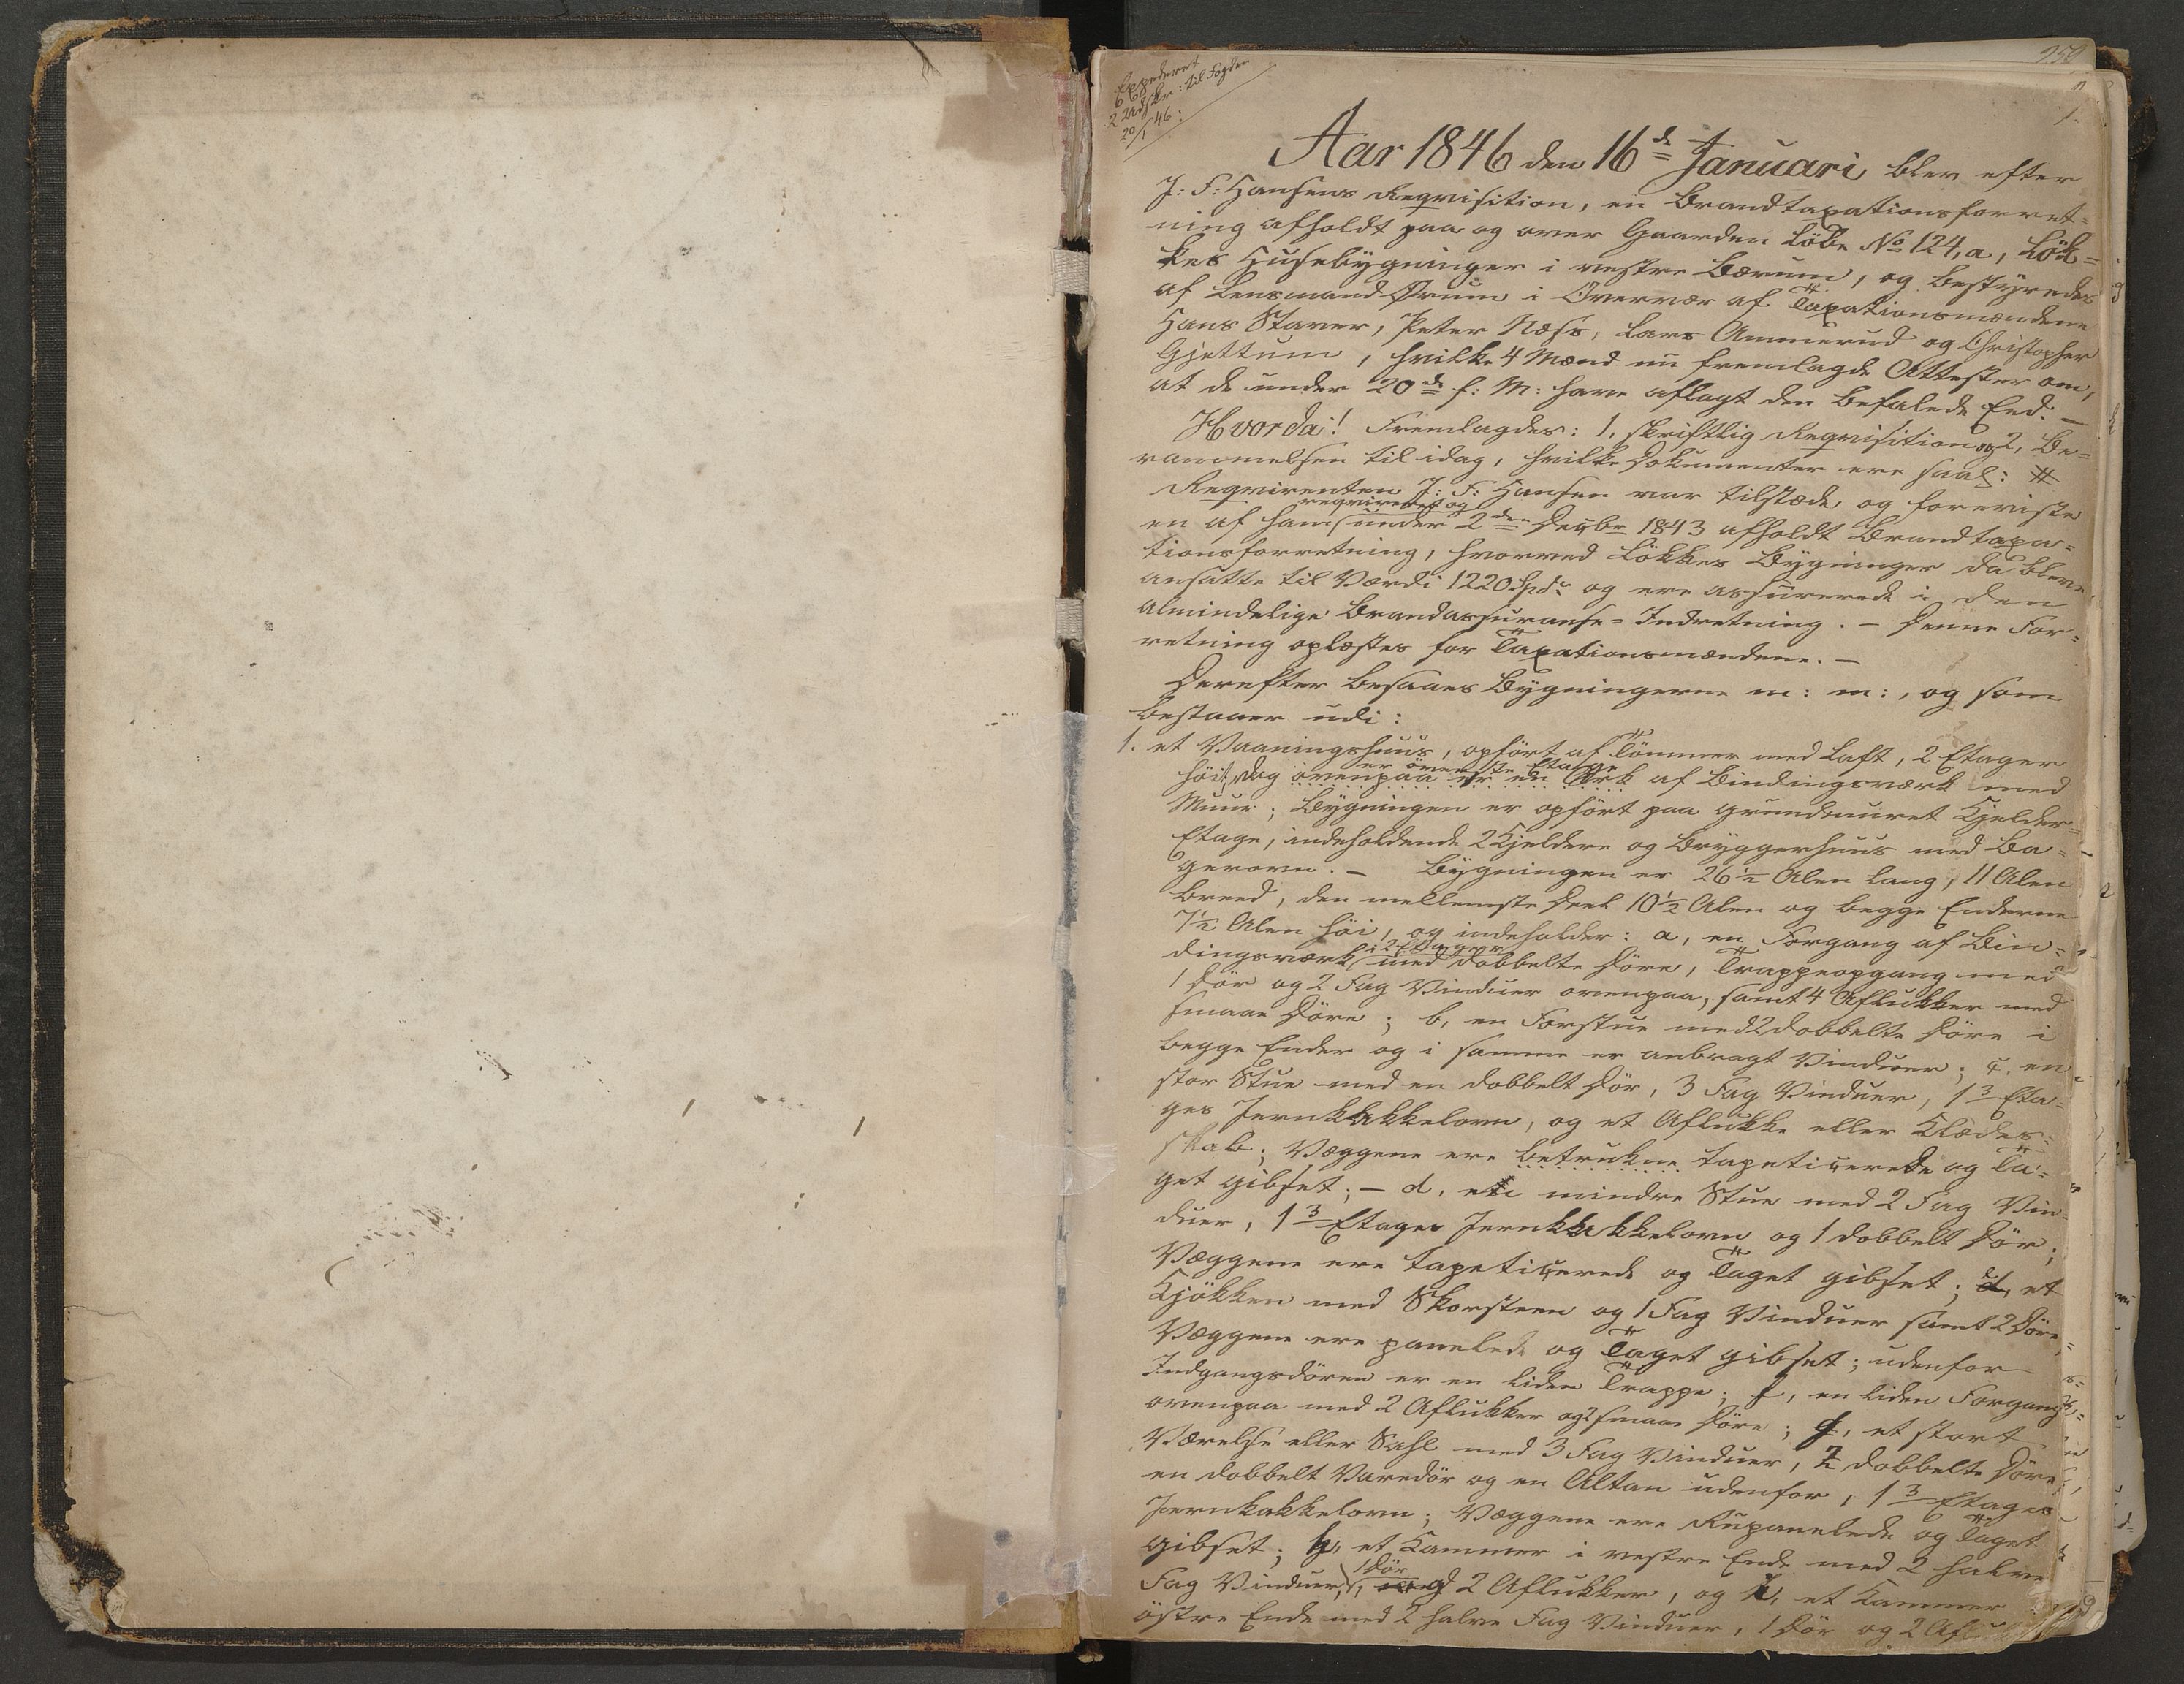 250
1.
Expederet
2 Udskr: til Fogden
20/1 46:
Aar 1846 den 16de Januari blev efter
J: F: Hansens Reqvisition, en Brandtaxationsforret-
ning afholdt paa og over Gaarden Löbe No 124, a, Lök-
kes Husebygninger i vestre Bærum, og bestyredes
af Lensmand Ørum i Overvær af Taxationsmændene
Hans Staver, Peter Næss, Lars Ammerud og Christopher
Gjettum, hvilke 4 Mænd nu fremlagde Attester om,
at de under 20de f: M: have aflagt den befalede Eed. —
Hvorda! Fremlagdes: 1, skriftlig Reqvisition og 2, Be-
rammelsen til idag, hvilke Dokumenter ere saal: #
Reqvirenten J: F: Hansen var tilstæde og foreviste
reqvireret og
en af ham under 2den Decbr 1843 afholdt Brandtaxa-
tionsforretning, hvorved Lökkes Bygninger da bleve
ansatte til Værdi 1220 Spd: og ere assurerede i den
almindelige Brandassuranse-Indretning. — Denne For-
retning oplæstes for Taxationsmændene. —
Derefter besaaes Bygningerne m: m:, og som
bestaaer udi:
1. et Vaaningshuus, opfört af Tömmer med Loft, 2 Etager
er överste Etage
höi, dog ovenpaa er en Ark af Bindingsværk med
Muur; Bygningen er opfört paa grundmuret Kjelder-
Etage, indeholdende 2 Kjeldere og Bryggerhuus med Ba-
gerovn. — Bygningen er 26 1/2 Alen lang, 11 Alen
breed, den mellemste Deel 10 1/2 Alen og begge Enderne
7 1/2 Alen höi, og indeholder: a, en Forgang af Bin-
i 2 Etager
dingsværk med dobbelte Döre, Trappeopgang med
1 Dör og 2 Fag Vinduer ovenpaa, samt 4 Aflukker med
smaae Döre; b, en Forstue med 2 dobbelte Döre i
begge Ender og i samme er anbragt Vinduer; c, en
stor Stue med en dobbelt Dör, 3 Fag Vinduer, 1 3 Eta-
ges Jernkakkelovn, og et Aflukke eller Klædes-
skab; Væggene ere betrukne tapeticerede og Ta-
get gibset; — d, en mindre Stue med 2 Fag Vin-
duer, 1 3 Etages Jernkakkelovn og 1 dobbelt Dör;
Væggene ere tapeticerede og Taget gibset; e, et
Kjökken med Skorsteen og 1 Fag Vinduer samt 2 Döre,
Væggene ere panelede og Taget gibset; udenfor
Indgangsdören er en liden Trappe; f, en liden Forgang
ovenpaa med 2 Aflukker og 2 smaae Döre; g, et stort
Værelse eller Sahl med 3 Fag Vinduer, 2 dobbelte Döre,
en dobbelt Varedör og en Altan udenfor, 1 3 Etages
Jernkakkelovn; Væggene ere Rupanelede og Taget
gibset; h, et Kammer i vestre Ende med 2 halve
1 Dör
Fag Vinduer, og 2 Aflukker, og i, et Kammer
östre Ende med 2 halve Fag Vinduer, 1 Dör og 2